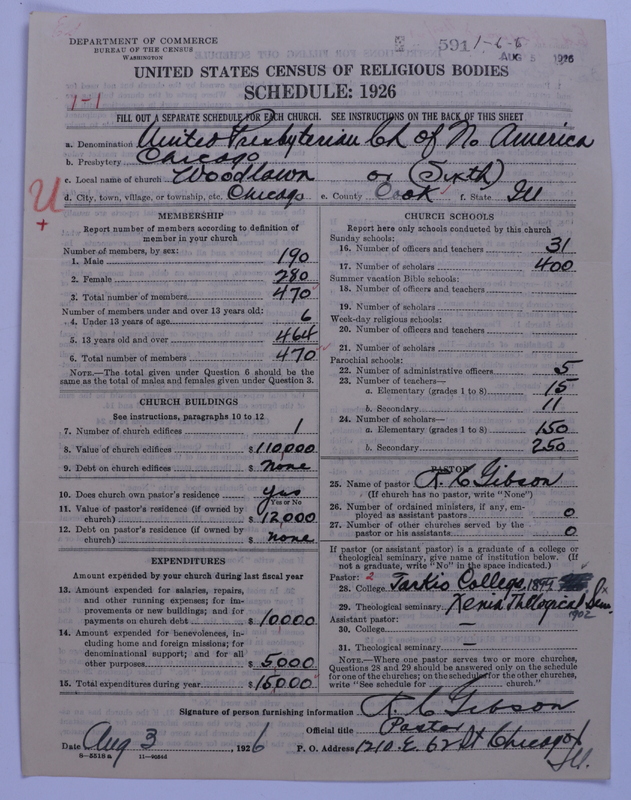 DEPARTMENT OF COMMERCE
BUREAU OF THE CENSUS
WASHINGTON
591 1-6-6
AUG 5 1926
UNITED STATES CENSUS OF RELIGIOUS BODIES
SCHEDULE: 1926
1-1
FILL OUT A SEPARATE SCHEDULE FOR EACH CHURCH. SEE INSTRUCTIONS ON THE BACK OF THIS SHEET
a. Denomination United Presbyterian Ch of No America
b. Presbytery Chicago
c. Local name of church Woodlawn or (Sixth)
d. City, town, village, or township, etc. Chicago e. County Cook f. State Ill
U
+
MEMBERSHIP
Report number of members according to definition of
member in your church
Number of members, by sex:
1. Male 190
2. Female 280
3. Total number of members 470
Number of members under and over 13 years old:
4. Under 13 years of age 6
5. 13 years old and over 464
6. Total number of members 470
NOTE.—The total given under Question 6 should be
the same as the total of males and females given under Question 3.
CHURCH BUILDINGS
See instructions, paragraphs 10 to 12
7. Number of church edifices 1
8. Value of church edifices $ 110,000
9. Debt on church edifices $ none
10. Does church own pastor's residence yes
Yes or No
11. Value of pastor's residence (if owned by
church) $ 12,000
12. Debt on pastor's residence (if owned by
church) $ none
EXPENDITURES
Amount expended by your church during last fiscal year
13. Amount expended for salaries, repairs,
and other running expenses; for im-
provements or new buildings; and for
payments on church debt $ 10000
14. Amount expended for benevolences, in-
cluding home and foreign missions; for
denominational support; and for all
other purposes $ 5,000
15. Total expenditures during year $ 15,000
CHURCH SCHOOLS
Report here only schools conducted by this church
Sunday schools:
16. Number of officers and teachers 31
17. Number of scholars 400
Summer vacation Bible schools:
18. Number of officers and teachers
19. Number of scholars
Week-day religious schools:
20. Number of officers and teachers
21. Number of scholars
Parochial schools:
22. Number of administrative officers 5
23. Number of teachers—
a. Elementary (grades 1 to 8) 15
b. Secondary 11
24. Number of scholars—
a. Elementary (grades 1 to 8) 150
b. Secondary 250
PASTOR
25. Name of pastor R. C. Gibson
(If church has no pastor, write "None")
26. Number of ordained ministers, if any, em-
ployed as assistant pastors 0
27. Number of other churches served by the
pastor or his assistants 0
If pastor (or assistant pastor) is a graduate of a college or
theological seminary, give name of institution below. (If
not a graduate, write "No" in the space indicated.)
Pastor: 2
28. College Tarkio College, 1899
29. Theological seminary Xenia Theological Sem. 1902
Assistant pastor:
30. College —
31. Theological seminary —
NOTE.—Where one pastor serves two or more churches,
Questions 28 and 29 should be answered only on the schedule
for one of the churches; on the schedule for the other churches,
write "See schedule for church."
Signature of person furnishing information R. C. Gibson
Official title Pastor
Date Aug 3, 1926 P. O. Address 1210 E. 62 St Chicago
Ill.
8-5518a 11-9084d